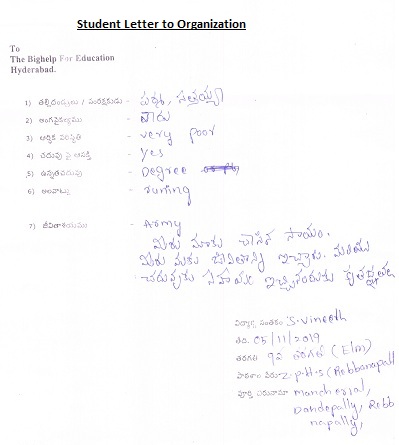 Student Letter to Organization
To
The Bighelp For Education
Hyderabad.
1) తల్లిదండ్రులు / సంరక్షకుడు -
2) అంగవైకల్యము -
3) ఆర్థిక పరిస్థితి - very poor
4) చదువు పై ఆసక్తి - yes
5) ఉన్నతచదువు - Degree
6) అలవాట్లు - runing
7) జీవితాశయము - Army
మీరు మాకు చేసిన సాయం.
మీరు మాకు జీవితాన్ని ఇచ్చారు. మరియు
చదువుకు సహాయం
విద్యార్థి సంతకం S.vineeth
తేది. 05/11/2019
తరగతి 9వ తరగతి (E/m)
పాఠశాల పేరు Z.P.H.S (Rebbanapall
పూర్తి చిరునామా mancherial,
Dandepally, Rebb
napally,